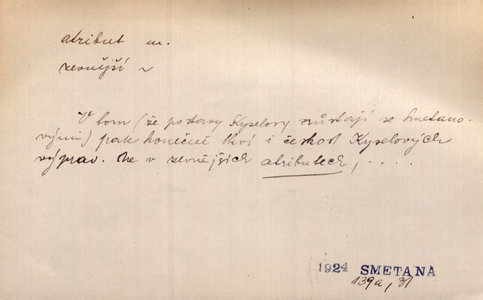 atribut m.
zevnější ~
V tom (že postavy Kyselovy srůstají se Smetano-
vými) pak konečně tkví i českost Kyselových
výprav. Ne v zevnějších atributech, . . . .
1924 SMETANA
139a, 31